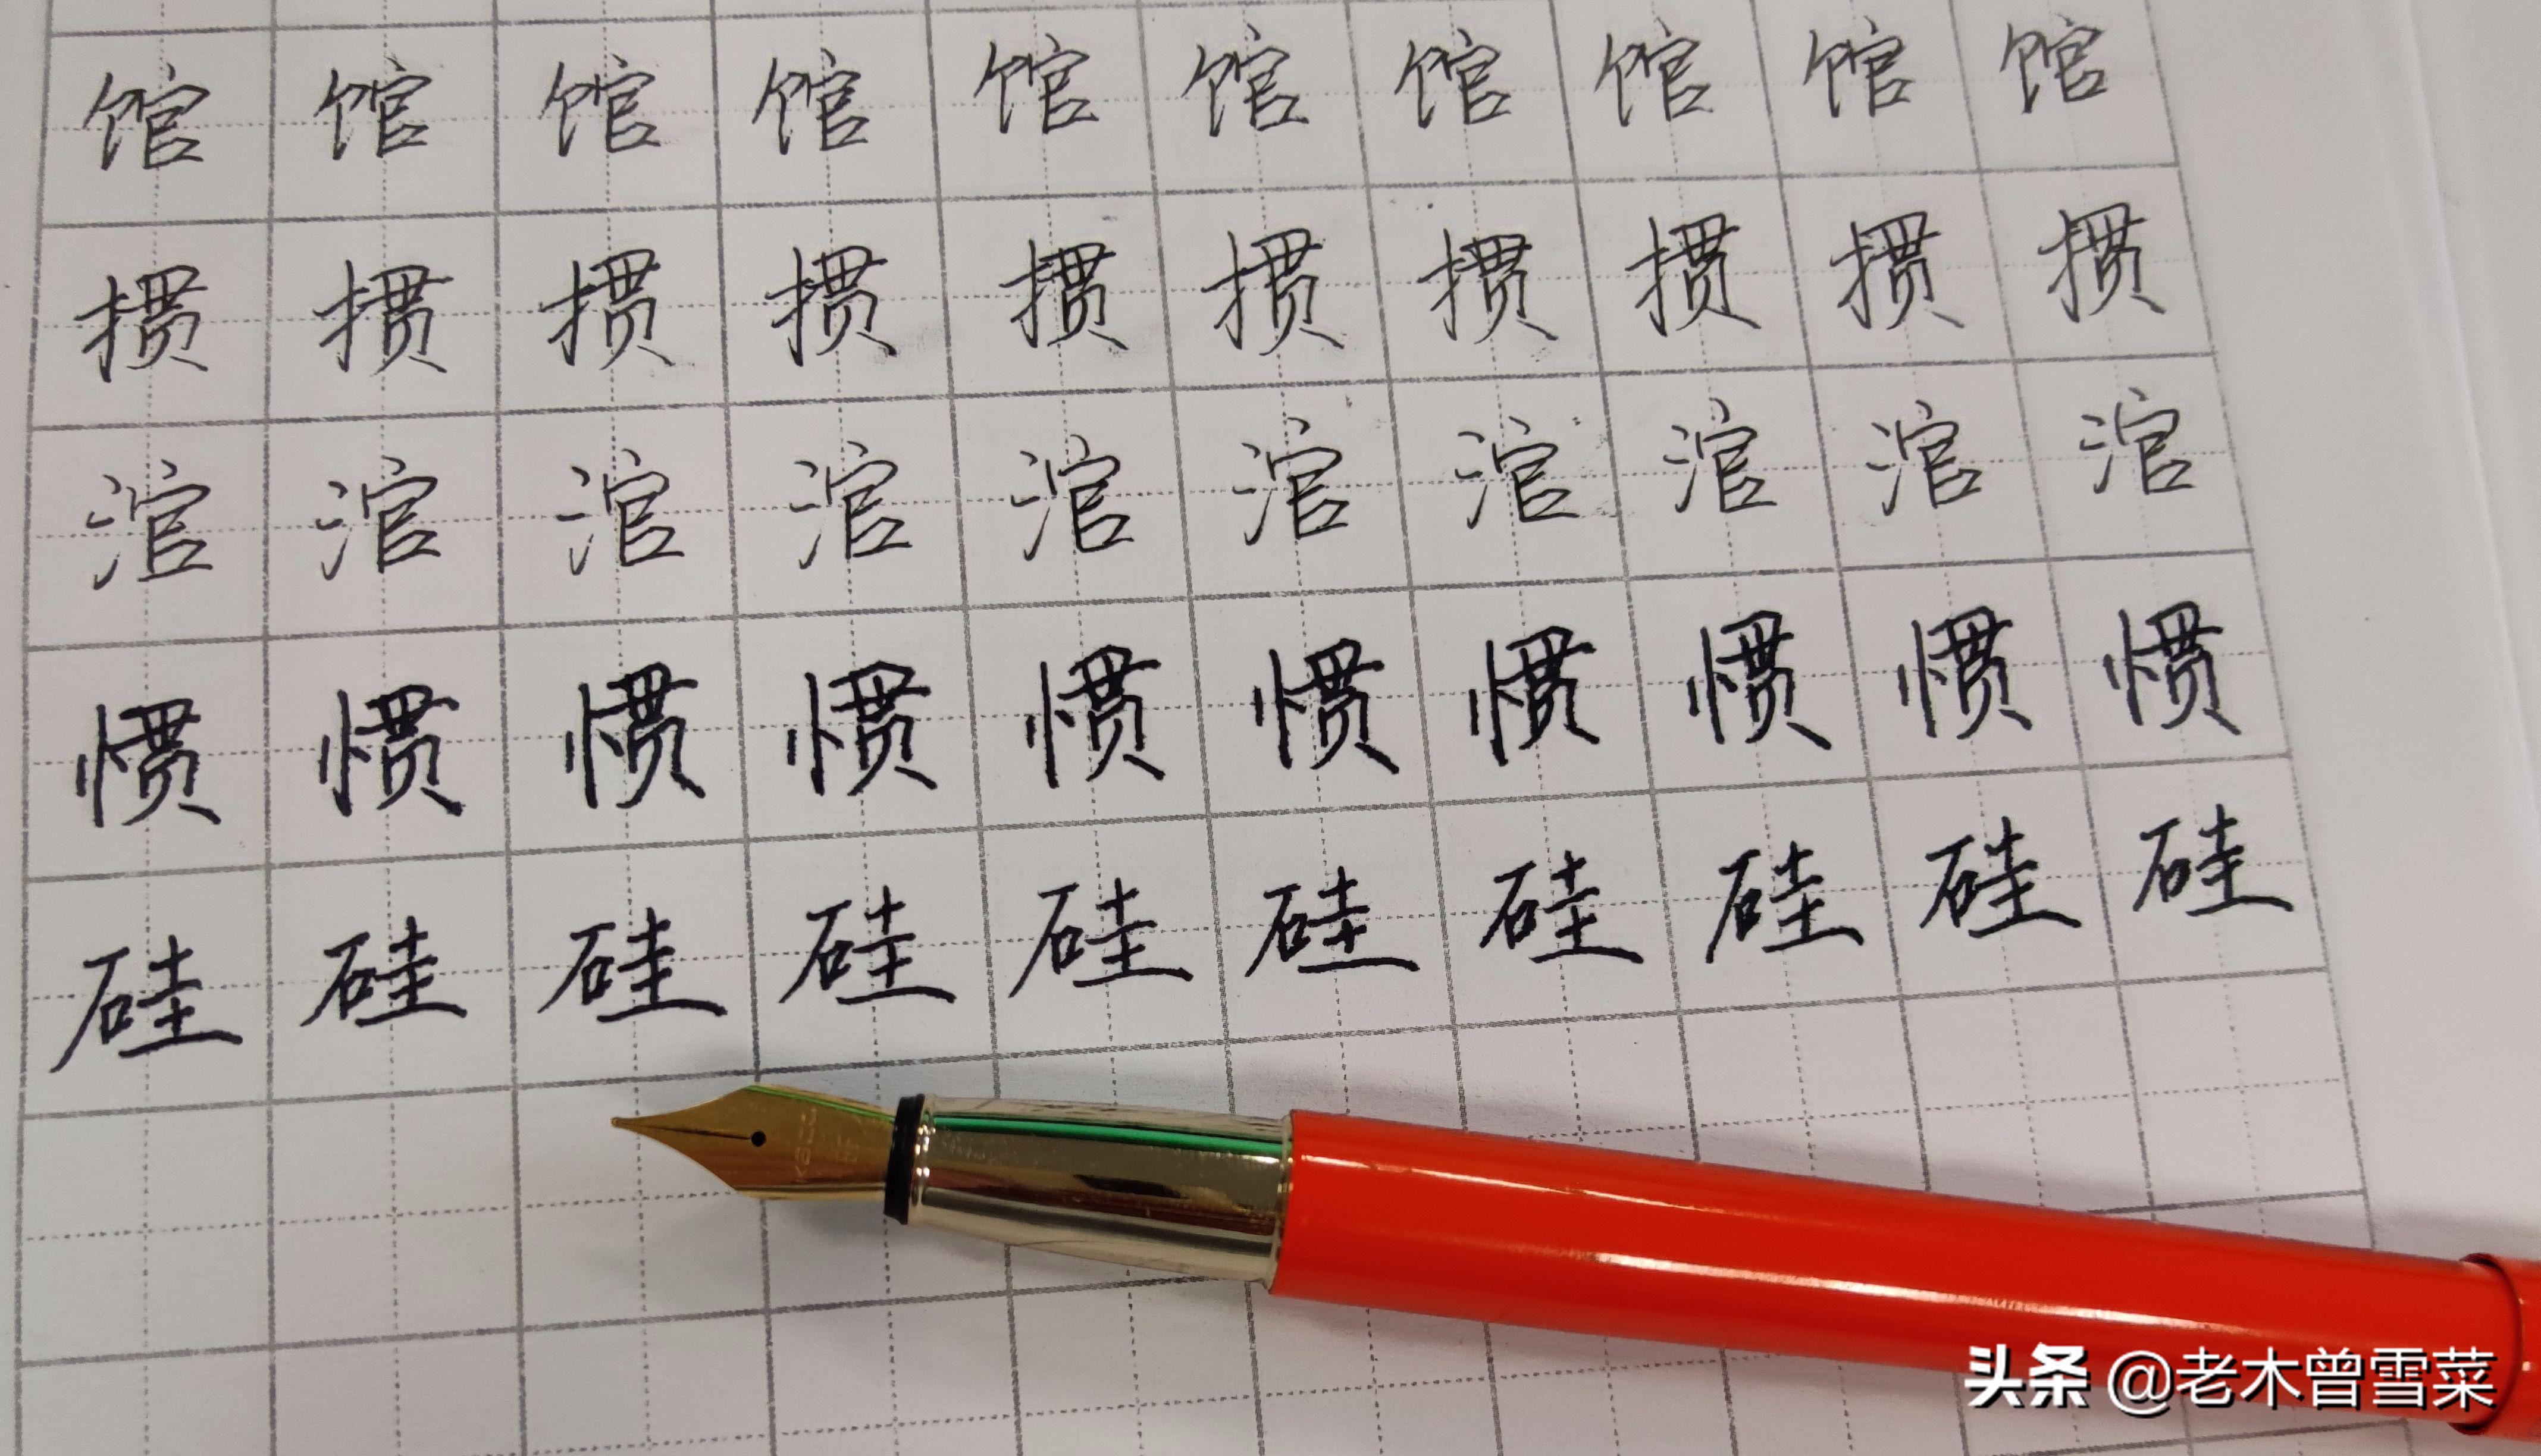 馆馆馆馆馆馆馆馆馆馆
掼掼掼掼掼掼掼掼掼掼
涫涫涫涫涫涫涫涫涫涫
惯惯惯惯惯惯惯惯惯惯
硅硅硅硅硅硅硅硅硅硅
kaco
头条 @老木曾雪菜